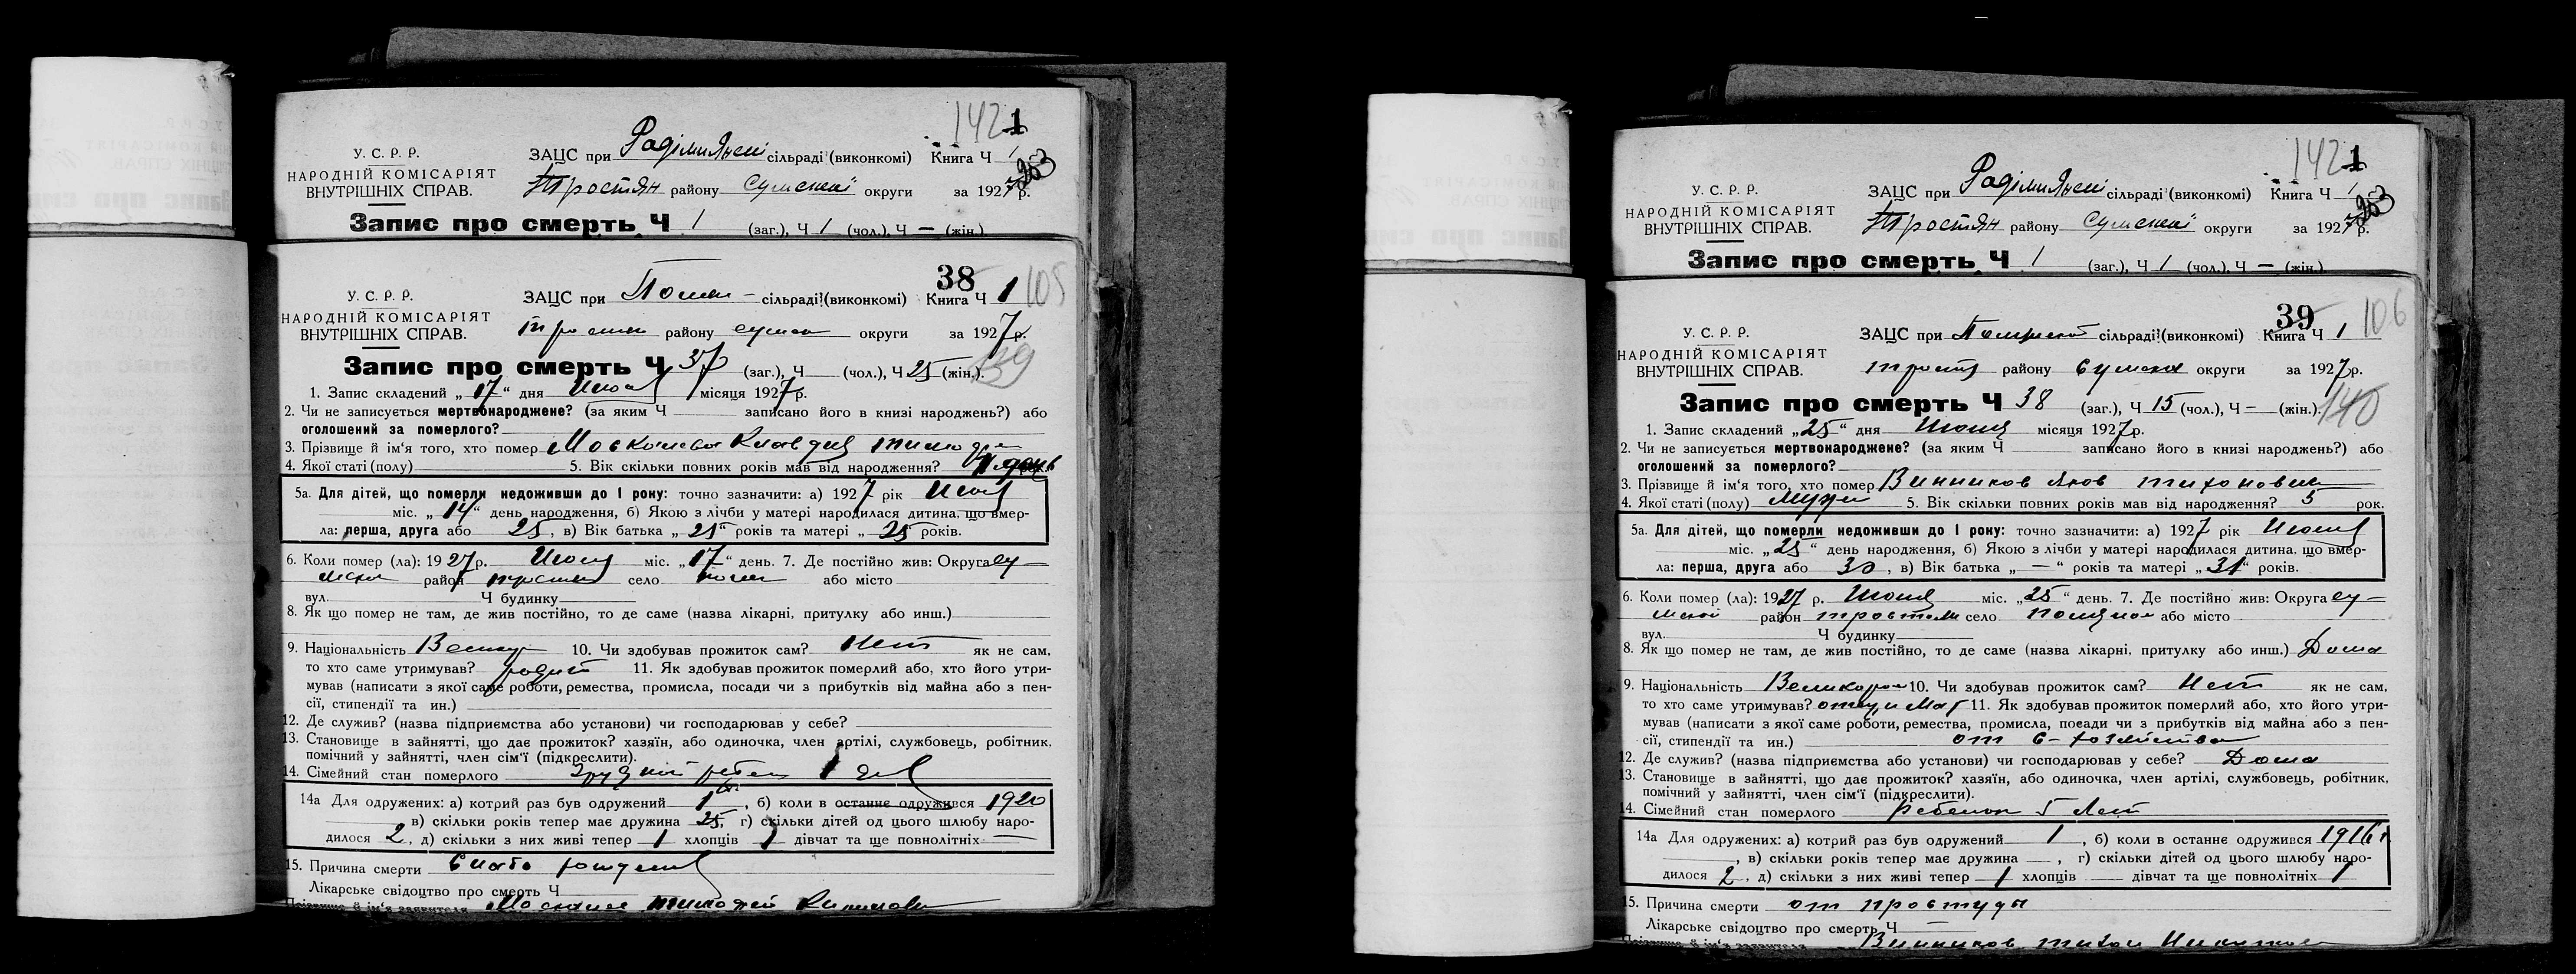 142 1
У. С. Р. Р.
НАРОДНІЙ КОМІСАРІЯТ
ВНУТРІШНІХ СПРАВ.
ЗАЦС при сільраді (виконкомі) Книга Ч 1
Тростян району Сумской округи за 1927 р.
253
Запис про смерть Ч 1 (заг.), Ч 1 (чол.), Ч — (жін.)
38 105
У. С. Р. Р.
НАРОДНІЙ КОМІСАРІЯТ
ВНУТРІШНІХ СПРАВ.
ЗАЦС при сільраді (виконкомі) Книга Ч 1
району округи за 1927 р.
139
Запис про смерть Ч 37 (заг.), Ч (чол.), Ч 25 (жін.).
1. Запис складений „17“ дня місяця 1927 р.
2. Чи не записується мертвонароджене? (за яким Ч записано його в книзі народжень?) або
оголошений за померлого?
3. Прізвище й ім‘я того, хто помер Москалева Клавдия
4. Якої статі (полу) 5. Вік скільки повних років мав від народження?
5а. Для дітей, що померли недоживши до 1 року: точно зазначити: а) 1927 рік
міс. „14“ день народження, б) Якою з лічби у матері народилася дитина, що вмер-
ла: перша, друга або 25, в) Вік батька „25“ років та матері „25“ років.
6. Коли помер (ла): 1927 р. Июля міс. „17“ день. 7. Де постійно жив: Округа су-
мская район село або місто
вул. Ч будинку
8. Як що помер не там, де жив постійно, то де саме (назва лікарні, притулку або инш.)
9. Національність 10. Чи здобував прожиток сам? Нет як не сам,
то хто саме утримував? родит 11. Як здобував прожиток померлий або, хто його утри-
мував (написати з якої саме роботи, ремества, промисла, посади чи з прибутків від майна або з пен-
сії, стипендії та ин.)
12. Де служив? (назва підприємства або установи) чи господарював у себе?
13. Становище в зайнятті, що дає прожиток? хазяїн, або одиночка, член артілі, службовець, робітник,
помічний у зайнятті, член сім‘ї (підкреслити).
14. Сімейний стан померлого
14а Для одружених: а) котрий раз був одружений 1, б) коли в останнє одружився 1920
в) скільки років тепер має дружина 25, г) скільки дітей од цього шлюбу наро-
дилося 2, д) скільки з них живі тепер 1 хлопців 1 дівчат та ще повнолітніх —
15. Причина смерти
Лікарське свідоцтво про смерть Ч
Прізвище й ім‘я заявителя
142 1
У. С. Р. Р.
НАРОДНІЙ КОМІСАРІЯТ
ВНУТРІШНІХ СПРАВ.
ЗАЦС при сільраді (виконкомі) Книга Ч 1
Тростян району Сумской округи за 1927 р.
253
Запис про смерть Ч 1 (заг.), Ч 1 (чол.), Ч — (жін.)
39 106
У. С. Р. Р.
НАРОДНІЙ КОМІСАРІЯТ
ВНУТРІШНІХ СПРАВ.
ЗАЦС при сільраді (виконкомі) Книга Ч 1
району Сумска округи за 1927 р.
140
Запис про смерть Ч 38 (заг.), Ч 15 (чол.), Ч — (жін.).
1. Запис складений „25“ дня Июля місяця 1927 р.
2. Чи не записується мертвонароджене? (за яким Ч записано його в книзі народжень?) або
оголошений за померлого?
3. Прізвище й ім‘я того, хто помер Винников Яков Тихонович
4. Якої статі (полу) 5. Вік скільки повних років мав від народження? 5 рок.
5а. Для дітей, що померли недоживши до 1 року: точно зазначити: а) 1927 рік Июля
міс. „25“ день народження, б) Якою з лічби у матері народилася дитина, що вмер-
ла: перша, друга або 30, в) Вік батька „—“ років та матері „31“ років.
6. Коли помер (ла): 1927 р. Июля міс. „25“ день. 7. Де постійно жив: Округа су-
мской район село або місто
вул. Ч будинку
8. Як що помер не там, де жив постійно, то де саме (назва лікарні, притулку або инш.) Дома
9. Національність Великорос 10. Чи здобував прожиток сам? Нет як не сам,
то хто саме утримував? отец и мат 11. Як здобував прожиток померлий або, хто його утри-
мував (написати з якої саме роботи, ремества, промисла, посади чи з прибутків від майна або з пен-
сії, стипендії та ин.) от с-хозяйства
12. Де служив? (назва підприємства або установи) чи господарював у себе? Дома
13. Становище в зайнятті, що дає прожиток? хазяїн, або одиночка, член артілі, службовець, робітник,
помічний у зайнятті, член сім‘ї (підкреслити).
14. Сімейний стан померлого ребенок 5 лет
14а Для одружених: а) котрий раз був одружений 1, б) коли в останнє одружився 1916 г.
, в) скільки років тепер має дружина —, г) скільки дітей од цього шлюбу наро-
дилося 2, д) скільки з них живі тепер 1 хлопців — дівчат та ще повнолітніх 1
15. Причина смерти от простуды
Лікарське свідоцтво про смерть Ч —
Прізвище й ім‘я заявителя Винников Тихон